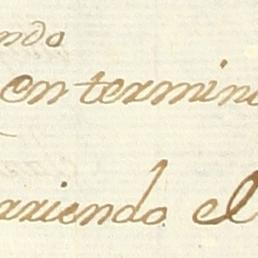 ndo
en termin
arriendo el